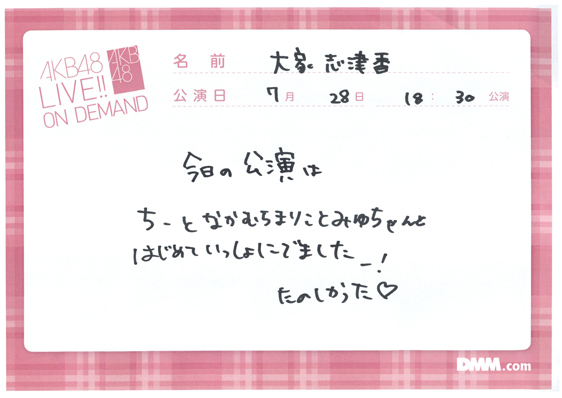 AKB48
LIVE!!
ON DEMAND
AKB
48
名前 大家志津香
公演日 7月 28日 18:30 公演
今日の公演は
ちーとなかむらまりことみゆちゃんと
はじめていっしょにでましたー!
たのしかった♡
DMM.com